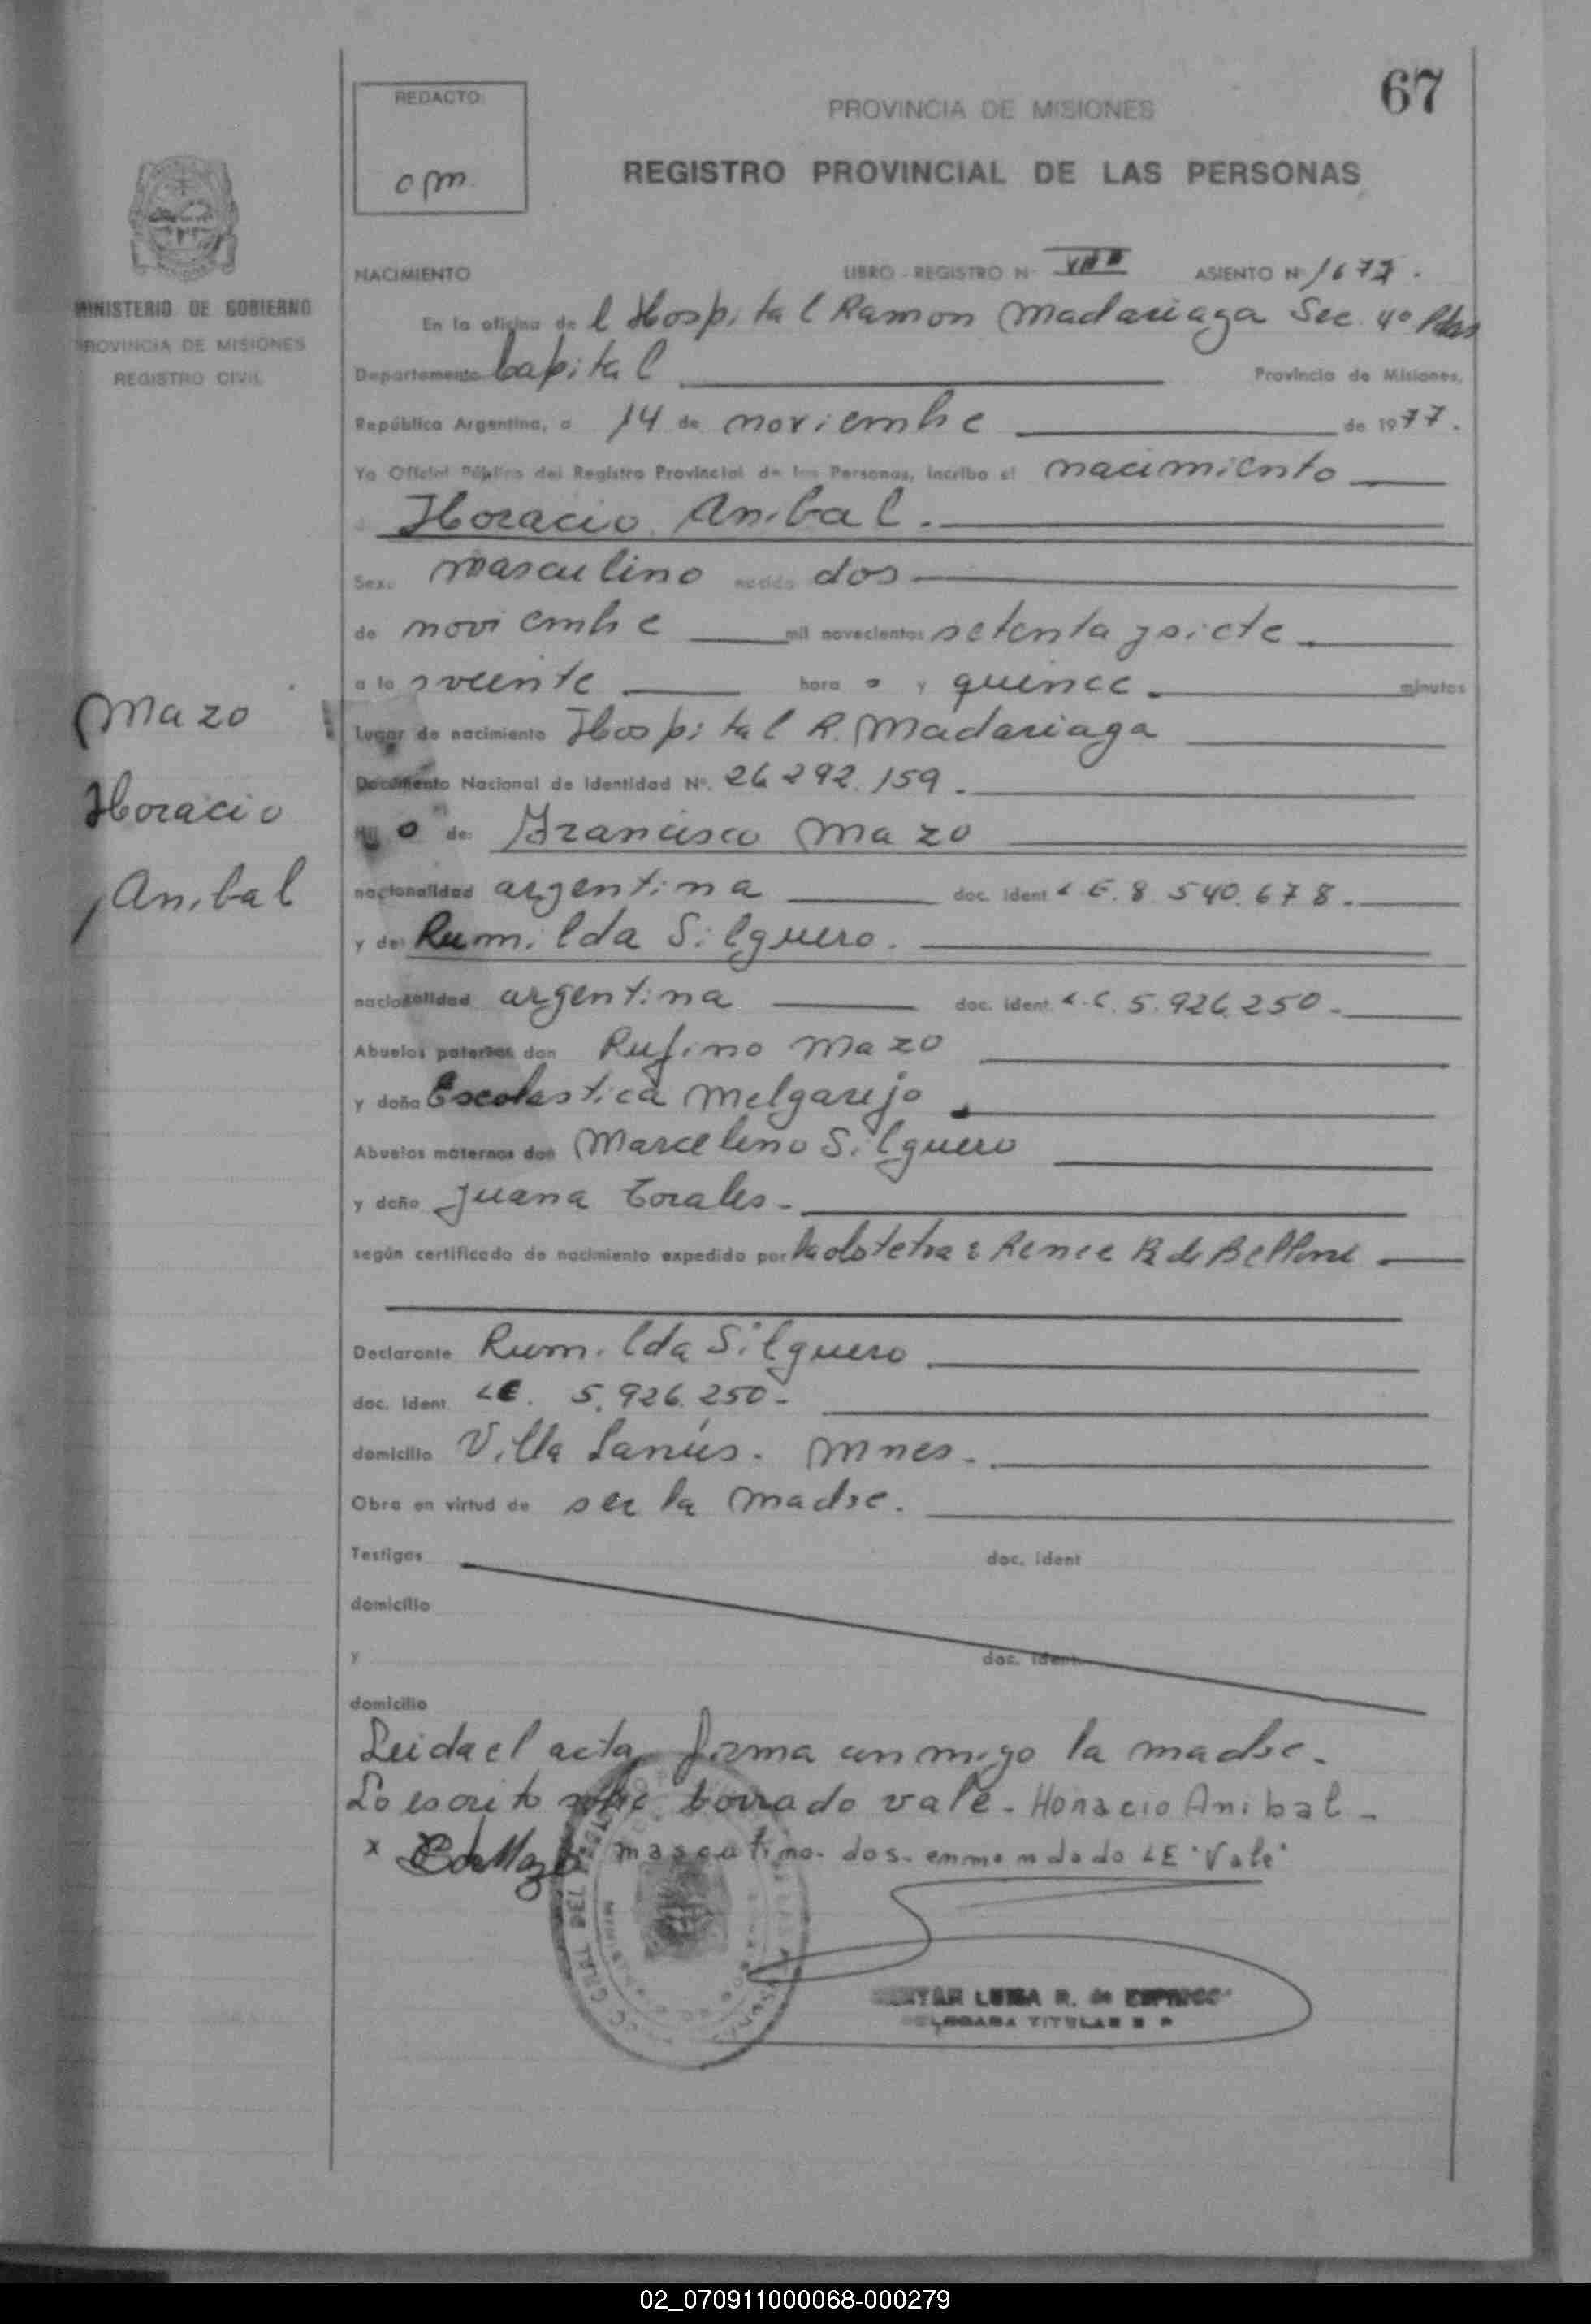 67
REDACTO
opm.
PROVINCIA DE MISIONES
REGISTRO PROVINCIAL DE LAS PERSONAS
MINISTERIO DE GOBIERNO
PROVINCIA DE MISIONES
REGISTRO CIVIL
NACIMIENTO LIBRO - REGISTRO Nº VIII ASIENTO Nº 1677.
En la oficina de l Hospital Ramon Madariaga Sec. 4º Pdas
Departamento Capital Provincia de Misiones,
República Argentina, a 14 de noviembre de 1977.
Yo Oficial Público del Registro Provincial de las Personas, inscribo el nacimiento
Horacio Anibal.
Sexo masculino nacido dos
de noviembre mil novecientos setenta y siete.
a la s veinte hora s y quince. minutos
Lugar de nacimiento Hospital R. Madariaga
Documento Nacional de Identidad Nº. 26 292.159.
Hij o de: Francisco Mazo
nacionalidad argentina doc. ident L.E. 8.540.678.
y de: Rumilda Silguero.
nacionalidad argentina doc. ident. L.C. 5.926.250.
Abuelos paternos don Rufino Mazo
y doña Escolastica Melgarejo
Abuelos maternos don Marcelino Silguero
y doña Juana Torales-
según certificado de nacimiento expedido por la obstetra: Renee B de Belloni
Declarante Rumilda Silguero
doc. Ident. LE. 5.926.250-
domicilio Villa Lanús. Mnes.
Obra en virtud de ser la madre.
Testigos doc. ident
domicilio
y doc. ident.
domicilio
Leida el acta, firma conmigo la madre.
Lo escrito sobre borrado vale. Horacio Anibal-
x masculino. dos. enmendado LE "Vale"
LUISA R. de
TITULAR
Mazo
Horacio
Anibal
02_070911000068-000279